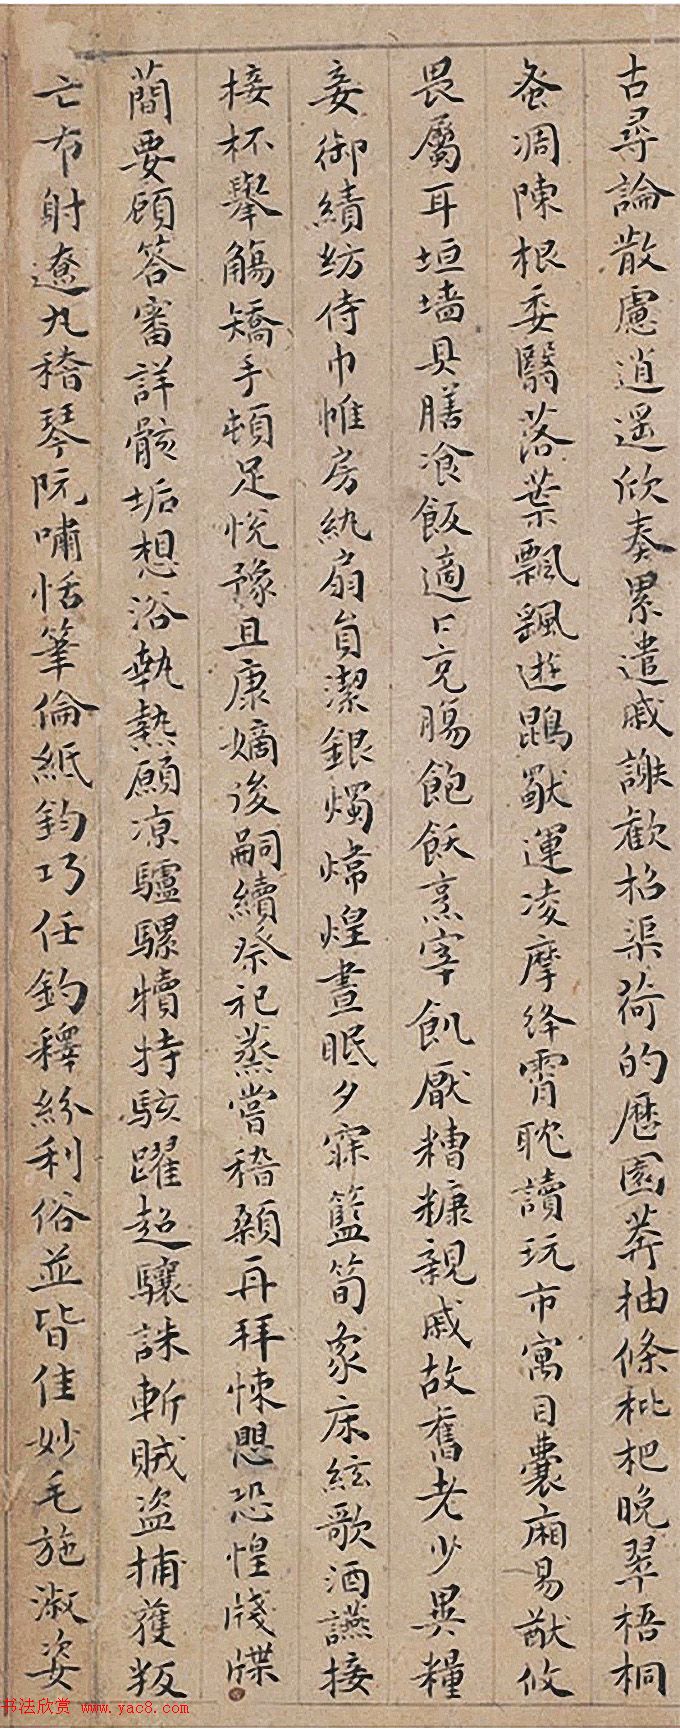 古尋論散慮逍遥欣奏累遣慼謝歡招渠荷的歷園莽抽條枇杷晚翠梧桐
蚤凋陳根委翳落葉飄飖遊鵾獸運凌摩絳霄耽讀玩市寓目囊廂易猷攸
畏屬耳垣墻具膳飡飯適口充腸飽飫烹宰飢厭糟糠親戚故舊老少異糧
妾御績紡侍巾帷房紈扇員潔銀燭煒煌晝眠夕寐籃筍象床絃歌酒讌接
接杯舉觴矯手頓足悅豫且康嫡後嗣續祭祀蒸嘗稽顙再拜悚懼恐惶牋牒
簡要顧答審詳骸垢想浴執熱願凉驢騾犢特駭躍超驤誅斬賊盜捕獲叛
亡布射遼丸稽琴阮嘯恬筆倫紙鈞巧任釣釋紛利俗並皆佳妙毛施淑姿
书法欣赏 www.yac8.com